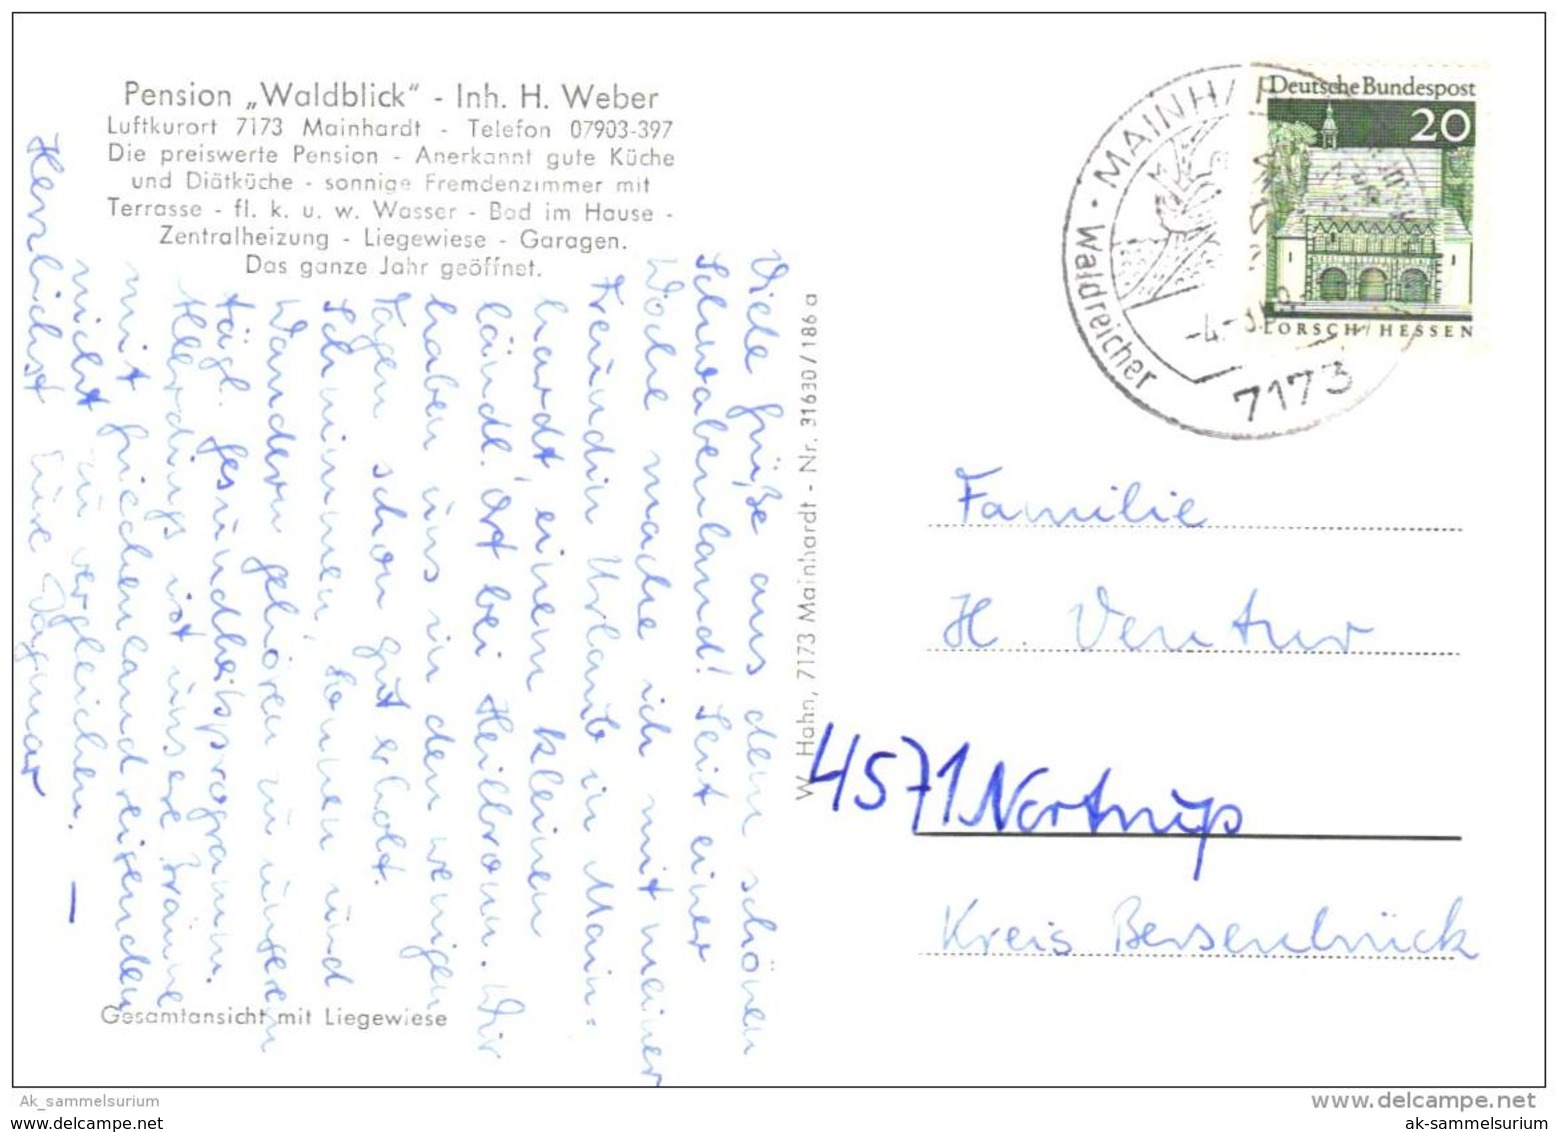 Pension „Waldblick“ - Inh. H. Weber
Luftkurort 7173 Mainhardt - Telefon 07903-397
Die preiswerte Pension - Anerkannt gute Küche
und Diätküche - sonnige Fremdenzimmer mit
Terrasse - fl. k. u. w. Wasser - Bad im Hause -
Zentralheizung - Liegewiese - Garagen.
Das ganze Jahr geöffnet.
Viele Grüße aus dem schönen
Schwabenland! Seit einer
Woche mache ich mit meiner
Freundin Urlaub in Main=
hardt, einem kleinen
ländl. Ort bei Heilbronn. Wir
haben uns in den wenigen
Tagen schon gut erholt.
Schwimmen, Sonnen und
Wandern gehören zu unserem
tägl. Gesundheitsprogramm.
Allerdings ist unsere Bräune
mit Griechenlandreisenden
nicht zu vergleichen.
Herzlichst Eure Dagmar
Gesamtansicht mit Liegewiese
W. Hahn, 7173 Mainhardt - Nr. 31630/186a
Deutsche Bundespost
20
LORSCH/HESSEN
MAINH
Waldreicher
-4.-
7173
Familie
H. Ventur
4571 Nortrup
Kreis Bersenbrück
Ak_sammelsurium
www.delcampe.net
www.delcampe.net
ak-sammelsurium